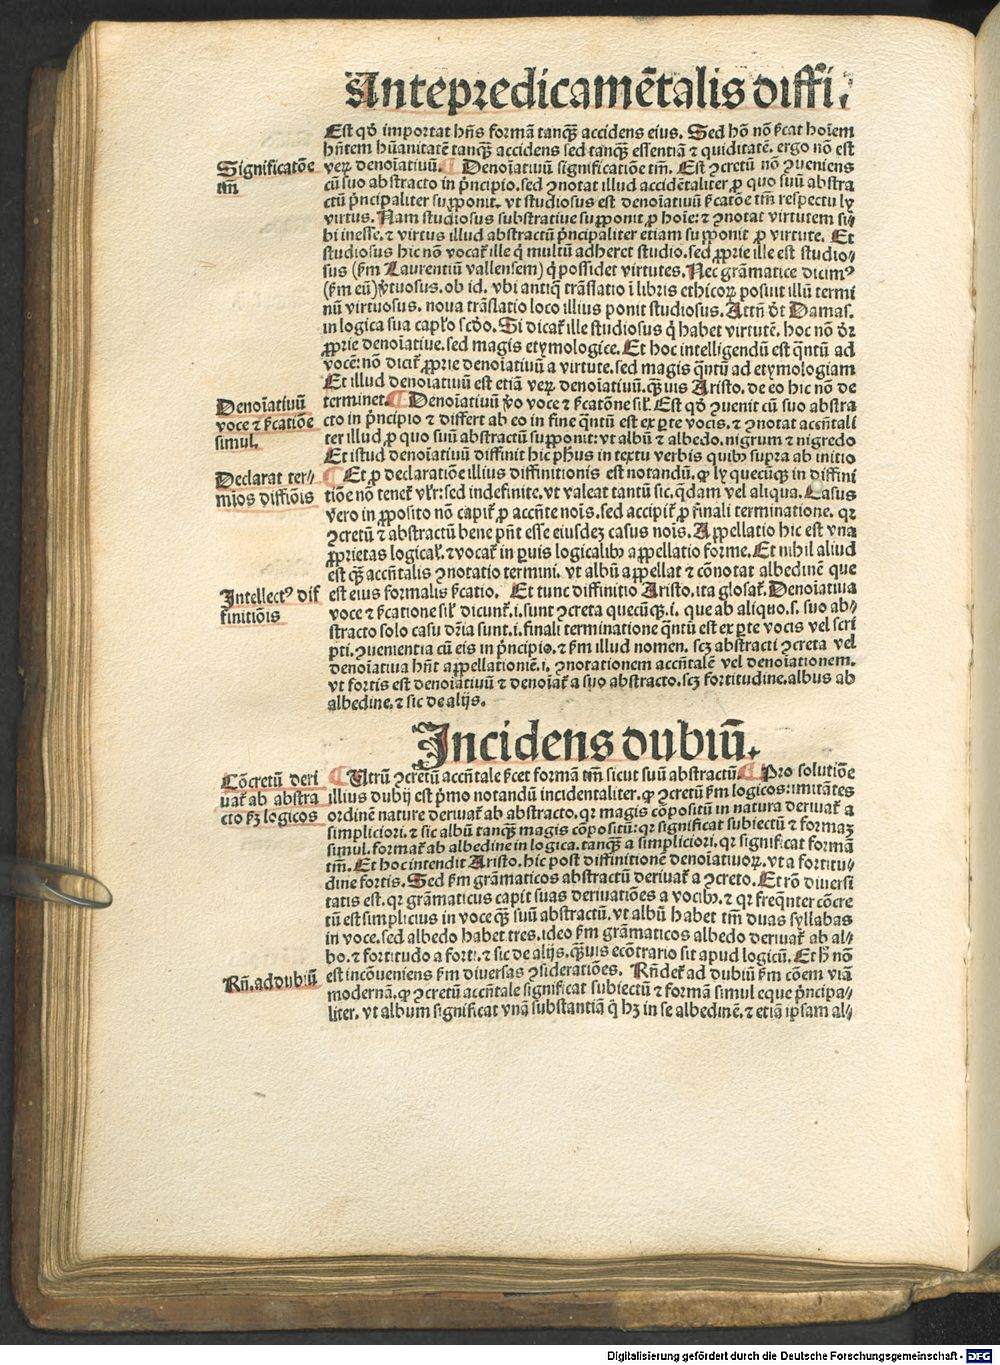 Antepredicamētalis diffi.
Est qď importat hñs formā tanqꝫ accidens eius. Sed hō nō ſicat hoīem
hñtem hūanitatē tanqꝫ accidens sed tanqꝫ essentiā ⁊ quiditatē. ergo nō est
verꝫ denoīatiuū. ¶ Denoīatiuū significatiōe tm̄. Est ꝯcretū nō ꝯueniens
Significatōe
tm̄
cū suo abstracto in pͥncipio. sed ꝯnotat illud accidētaliter ꝓ quo suū abstra
ctū pͥncipaliter supponit. vt studiosus est denoīatiuū ſicatōe tm̄ respectu ly
virtus. Nam studiosus substratiue supponit ꝓ hoīe: ⁊ ꝯnotat virtutem si⸗
bi inesse. ⁊ virtus illud abstractū pͥncipaliter etiam supponit ꝓ virtute. Et
studiosus hic nō vocat̄ ille qͥ multū adheret studio. sed ꝓprie ille est studio⸗
sus (ẜm Laurentiū vallensem) qͥ possidet virtutes. Nec grāmatice dicimꝰ
(ẜm eū) v̄tuosus. ob id. vbi antiq̄ trāslatio ī libris ethicoꝝ posuit illū termi
nū virtuosus. noua trāslatio loco illius ponit studiosus. Attñ dt̄ Damas.
in logica sua capło scďo. Si dicat̄ ille studiosus qͥ habet virtutē. hoc nō dr̄
ꝓprie denoīatiue. sed magis etymologice. Et hoc intelligendū est qͣntū ad
vocē: nō dicit̄ ꝓprie denoīatiuū a virtute. sed magis qͣntū ad etymologiam
Et illud denoīatiuū est etiā verꝫ denoīatiuū. qͣꝫuis Aristo. de eo hic nō de
terminet. ¶ Denoīatiuū ꝟo voce ⁊ ſicatōne siľ. Est qď ꝯuenit cū suo abstra
Denoīatiuū
voce ⁊ ſicatiōe
simul.
cto in pͥncipio ⁊ differt ab eo in fine qͣntū est ex ꝑte vocis. ⁊ ꝯnotat accñtali
ter illud ꝓ quo suū abstractū supponit: vt albū ⁊ albedo. nigrum ⁊ nigredo
Et istud denoīatiuū diffinit hic pħus in textu verbis quibꝫ supra ab initio
¶ Et ꝓ declaratiōe illius diffinitionis est notandū. ꝙ ly quecūqꝫ in diffini
Declarat ter⸗
mīos diffiōis
tiōe nō tenet̄ vľr: sed indefinite. vt valeat tantū sic. qͣdam vel aliqua. Casus
vero in ꝓposito nō capit̄ ꝓ accñte noīs. sed accipit̄ ꝓ finali terminatione. qꝛ
ꝯcretū ⁊ abstractū bene pn̄t esse eiusdeꝫ casus noīs. Appellatio hic est vna
ꝓprietas logicaľ. ⁊ vocat̄ in ꝑuis logicalibꝫ appellatio forme. Et nihil aliud
est qꝫ accñtalis ꝯnotatio termini. vt albū appellat ⁊ cōnotat albedinē que
est eius formalis ſicatio. Et tunc diffinitio Aristo. ita glosat̄. Denoīatiua
Intellectꝰ dif
finitiōis
voce ⁊ ſicatione siľ dicunt̄. i. sunt ꝯcreta quecūqꝫ. i. que ab aliquo. s. suo ab⸗
stracto solo casu dr̄ia sunt. i. finali terminatione qͣntū est ex ꝑte vocis vel scri
pti. ꝯuenientia cū eis in pͥncipio. ⁊ ẜm illud nomen. scꝫ abstracti ꝯcreta vel
denoīatiua hñt appellationē. i. ꝯnotationem accñtalē vel denoīationem.
vt fortis est denoīatiuū ⁊ denoīat̄ a suo abstracto. scꝫ fortitudine. albus ab
albedine. ⁊ sic de alijs.
Incidens dubiū.
¶ Vtrū ꝯcretū accñtale ſicet formā tm̄ sicut suū abstractū. ¶ Pro solutiōe
Cōcretū deri
uat̄ ab abstra
cto ẜꝫ logicos
illius dubij est pͥmo notandū incidentaliter. ꝙ ꝯcretū ẜm logicos: imitātes
ordinē nature deriuat̄ ab abstracto. qꝛ magis cōpositū in natura deriuat̄ a
simpliciori. ⁊ sic albū tanqꝫ magis cōpositū: qꝛ significat subiectū ⁊ formaꝫ
simul. format̄ ab albedine in logica. tanqꝫ a simpliciori. qꝛ significat formā
tm̄. Et hoc intendit Aristo. hic post diffinitionē denoīatiuoꝝ. vt a fortitu⸗
dine fortis. Sed ẜm grāmaticos abstractū deriuat̄ a ꝯcreto. Et rō diuersi
tatis est. qꝛ grāmaticus capit suas deriuatiōes a vocibꝫ. ⁊ qꝛ freqn̄ter cōcre
tū est simplicius in voce qꝫ suū abstractū. vt albū habet tm̄ duas syllabas
in voce. sed albedo habet tres. ideo ẜm grāmaticos albedo deriuat̄ ab al⸗
bo. ⁊ fortitudo a forti. ⁊ sic de alijs. qͣꝫuis ecōtrario sit apud logicū. Et ħ nō
est incōueniens ẜm diuersas ꝯsideratiōes. Rñdet̄ ad dubiū ẜm cōem viā
Rñ. ad dubiū
modernā. ꝙ ꝯcretū accñtale significat subiectū ⁊ formā simul eque pͥncipa⸗
liter. vt album significat vnā substantiā qͥ hꝫ in se albedinē. ⁊ etiā ipsam al⸗
Digitalisierung gefördert durch die Deutsche Forschungsgemeinschaft - DFG